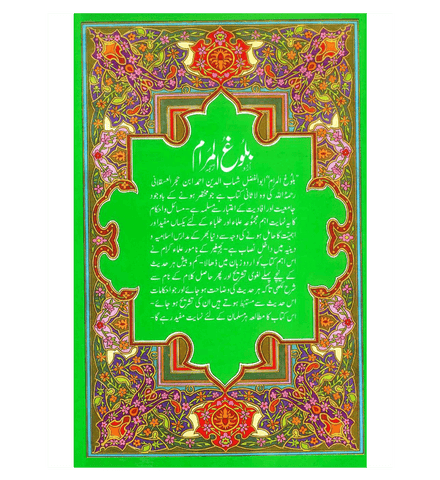 بلوغ المرام
"بلوغ المرام" ابوالفضل شہاب الدین احمد ابن حجر العسقلانی
رحمۃ اللہ کی وہ لاثانی کتاب ہے جو مختصر ہونے کے باوجود
جامعیت اور افادیت کے اعتبار سے مسلمہ ہے۔ مسائل و احکام
کا یہ نہایت اہم مجموعہ علماء اور طلباء کے لئے یکساں مفید اور
اہمیت کا حامل ہونے کی وجہ سے دنیا بھر کے مدارس اسلامیہ و
دینیہ میں داخل نصاب ہے۔ برصغیر کے نامور علماء کرام نے
اس اہم کتاب کو اردو زبان میں ڈھالا۔ کم و بیش ہر حدیث
کے نیچے پہلے لغوی تشریح اور پھر حاصل کلام کے نام سے
شرح لکھی تاکہ ہر حدیث کی وضاحت ہو جائے اور جو احکامات
اس حدیث سے مستنبط ہوتے ہیں ان کی تشریح ہو جائے۔
اس کتاب کا مطالعہ ہر مسلمان کے لئے نہایت مفید رہے گا۔